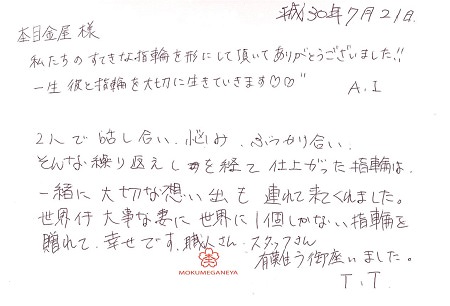 平成30年7月21日.
杢目金屋 様
私たちの すてきな指輪を形にして頂いて ありがとうございました!!
一生 彼と指輪を大切に生きていきます♡♡"
A.I
2人で 話し合い、悩み、ぶつかり合い、
そんな繰り返えしを経て 仕上がった指輪は、
一緒に 大切な想い出も 連れて来てくれました。
世界一 大事な妻に 世界に1個しかない指輪を
贈れて、幸せです。職人さん、スタッフさん
有難う御座いました。
MOKUMEGANEYA
T.T